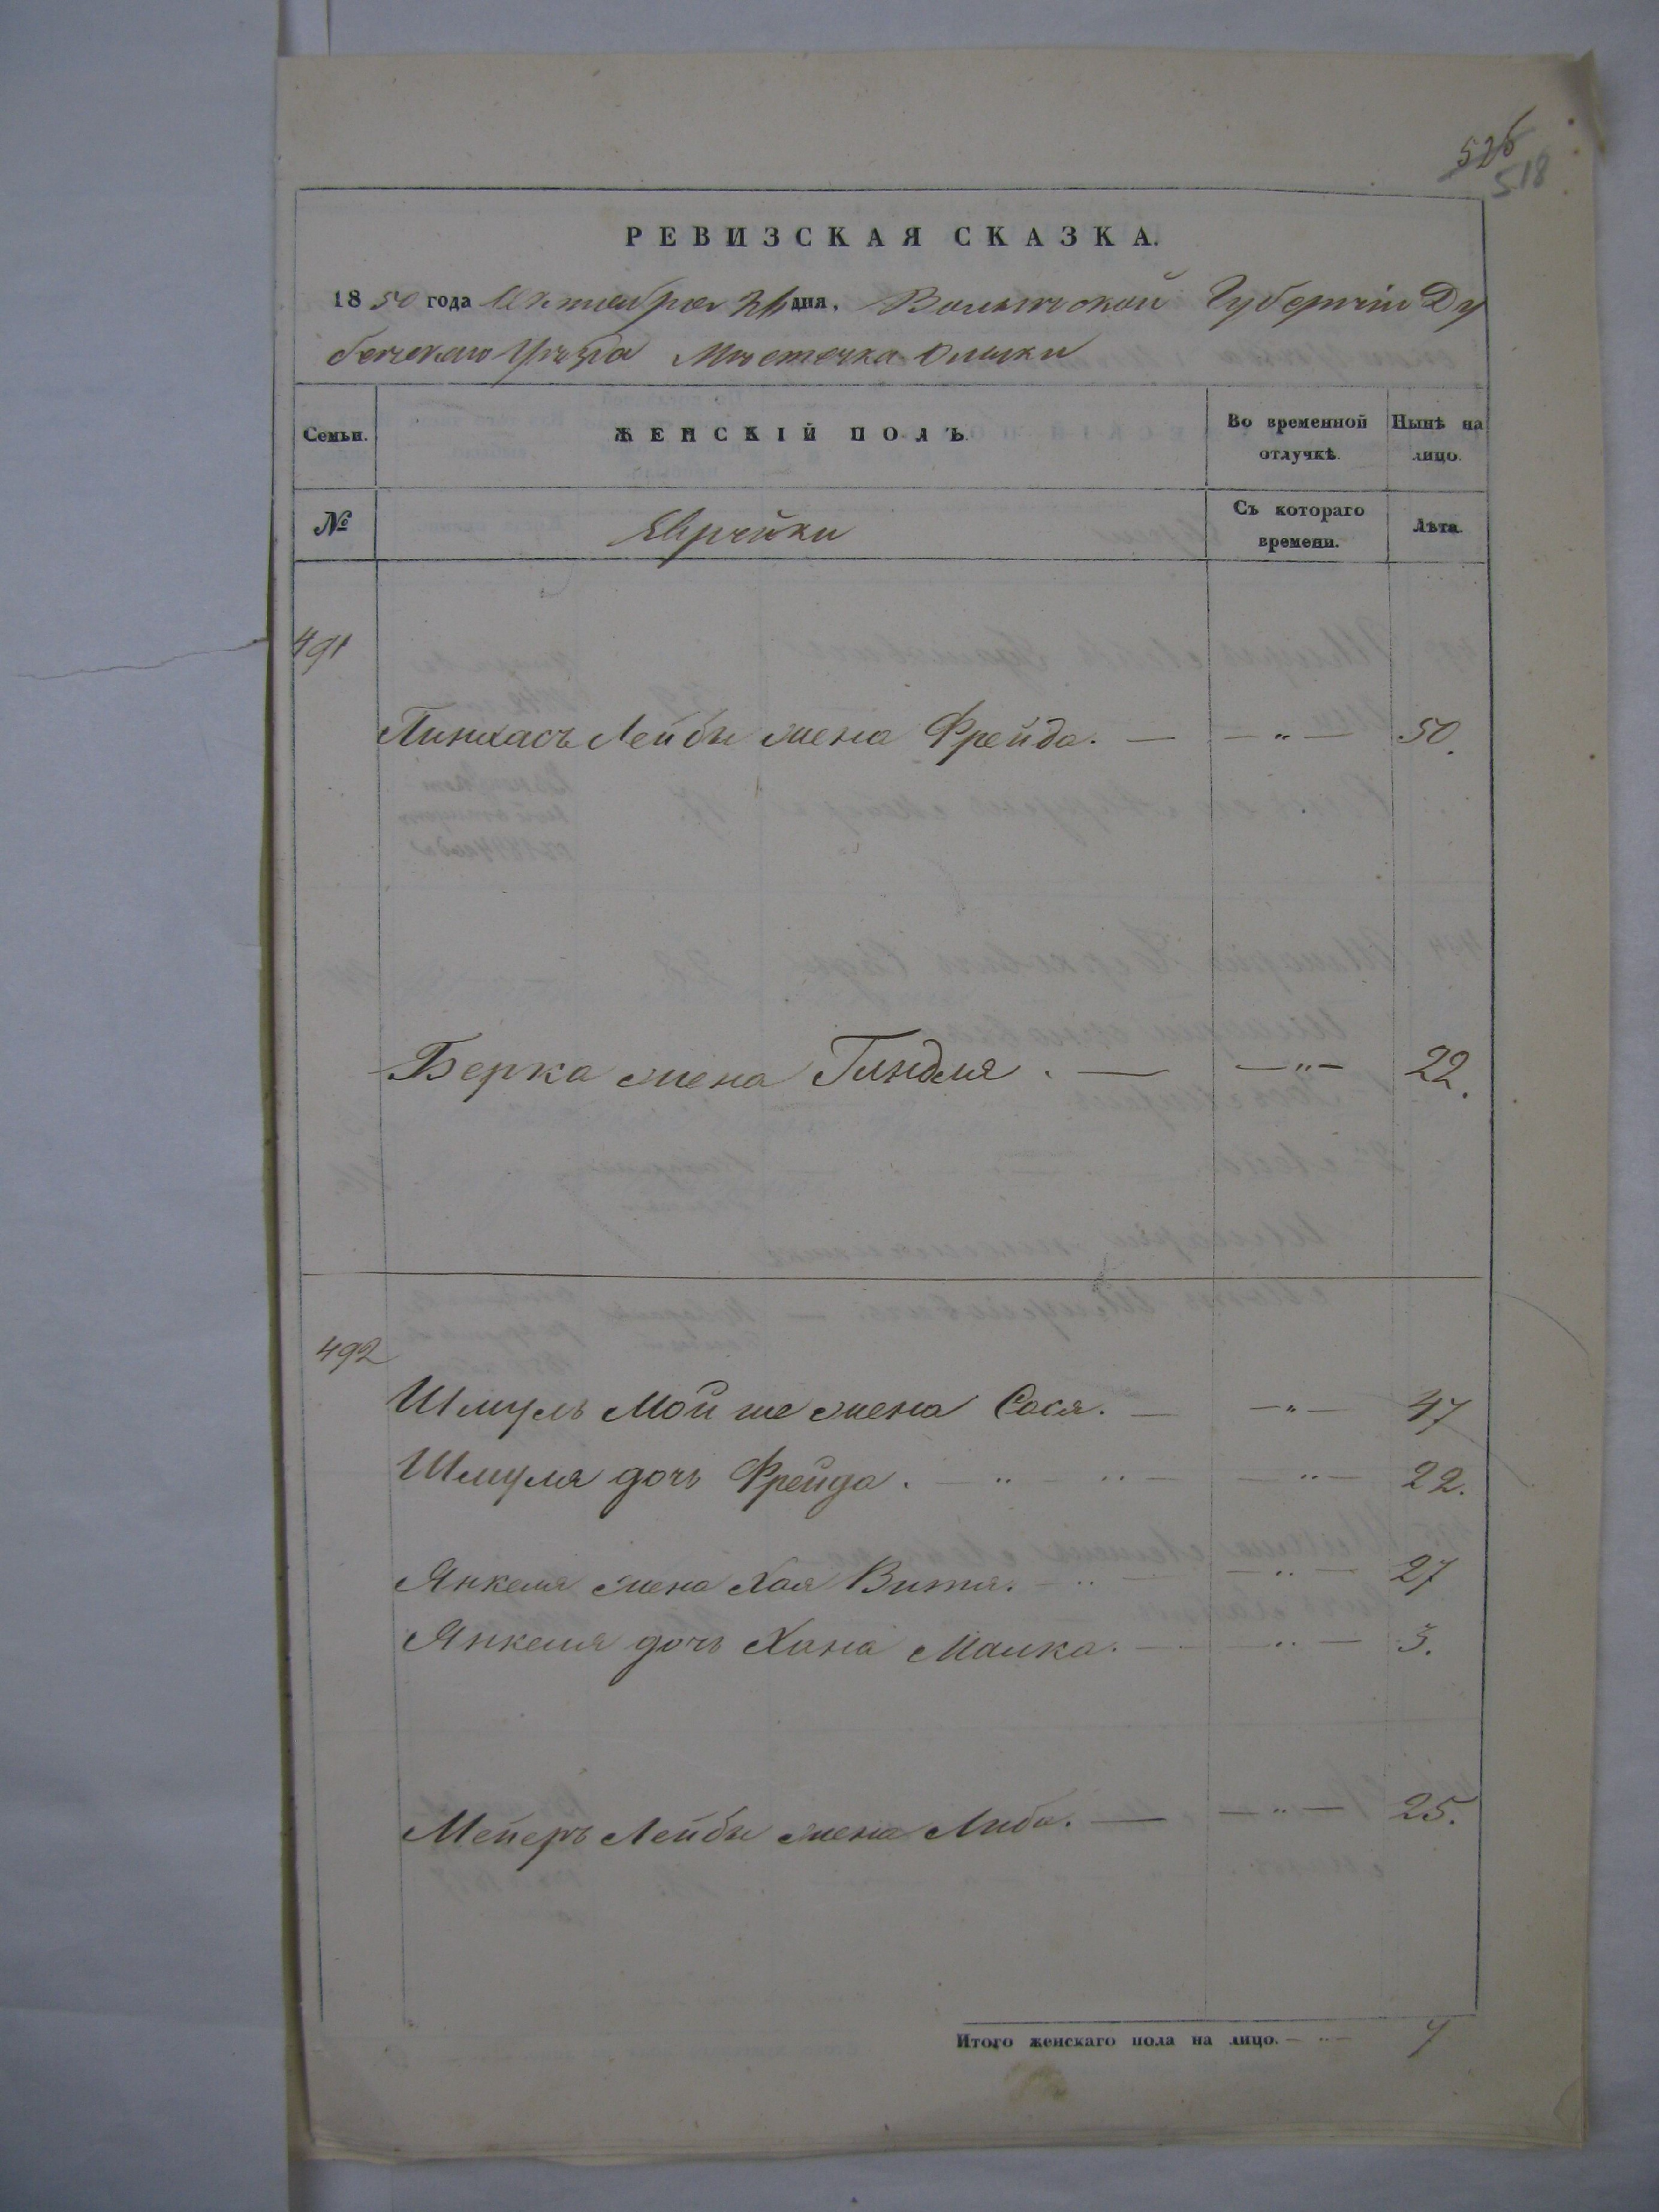 526
518
РЕВИЗСКАЯ СКАЗКА.
1850 года Октября дня. Волынской Губерніи Ду
бенскаго Уѣзда Мѣстечка Олыки
Семьи.
ЖЕНСКІЙ ПОЛЪ.
Во временной отлучкѣ.
Нынѣ на лицо.
№
Еврейки
Съ котораго времени.
Лѣта.
491
Пинхасъ Лейбы жена Фрейда. — — „ — 50.
Берка жена Гиндля. — — „ — 22.
492
Шмуль Мойше жена Сося. — — „ — 47
Шмуля дочь Фрейда. — „ — „ — — „ — 22.
Янкеля жена Хая Витя. — „ — — „ — 27
Янкеля дочь Хана Малка. — — „ — 3.
Мейеръ Лейбы жена Либа. — — „ — 25.
Итого женскаго пола на лицо. — „ — 7